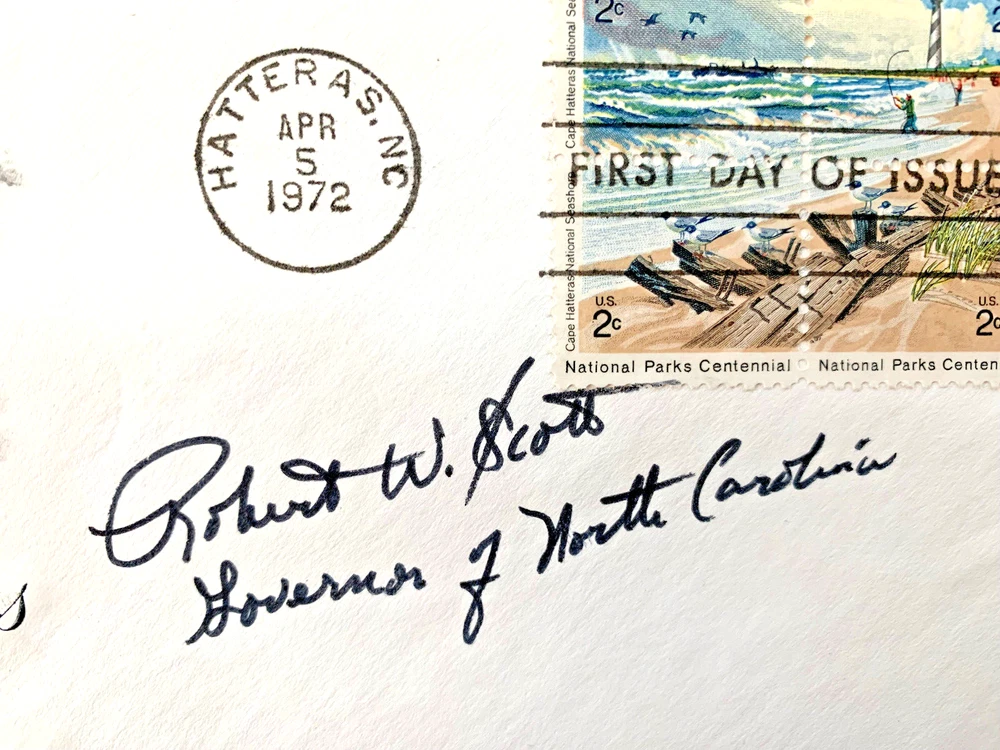 HATTERAS, NC
APR
5
1972
2c
Cape Hatteras National Sea
FIRST DAY OF ISSUE
Cape Hatteras National Seashore
U.S.
2c
U.S.
2c
National Parks Centennial
National Parks Centen
Robert W. Scott
Governor of North Carolina